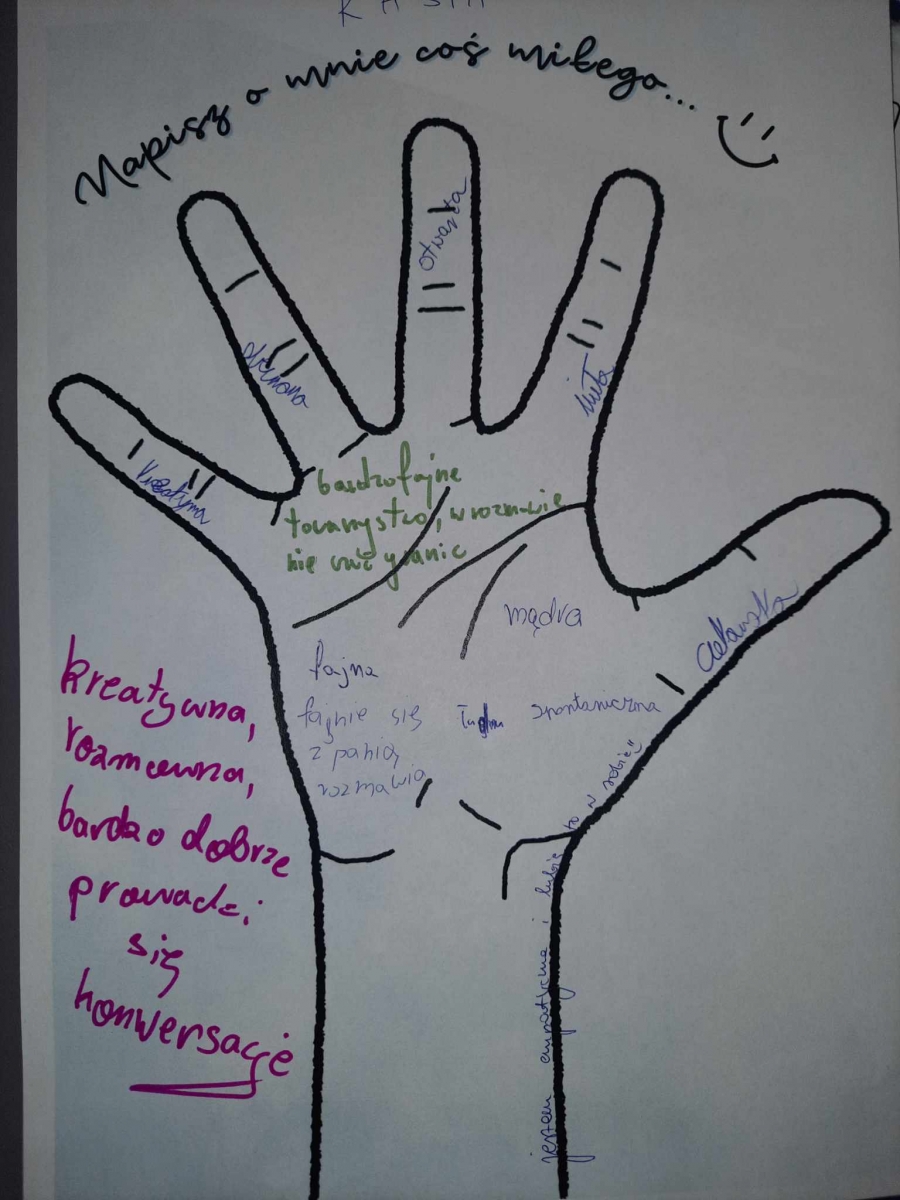 KASIA
Napisz o mnie coś miłego...
otwarta
miła
kreatywna
bardzo fajne
towarzystwo, w rozmowie
nie
mądra
ciekawska
fajna
fajnie się
z panią
rozmawia
spontaniczna
kreatywna,
rozmowna,
bardzo dobrze
prowadzi
się
konwersacje
jestem empatyczna i lubię to w sobie